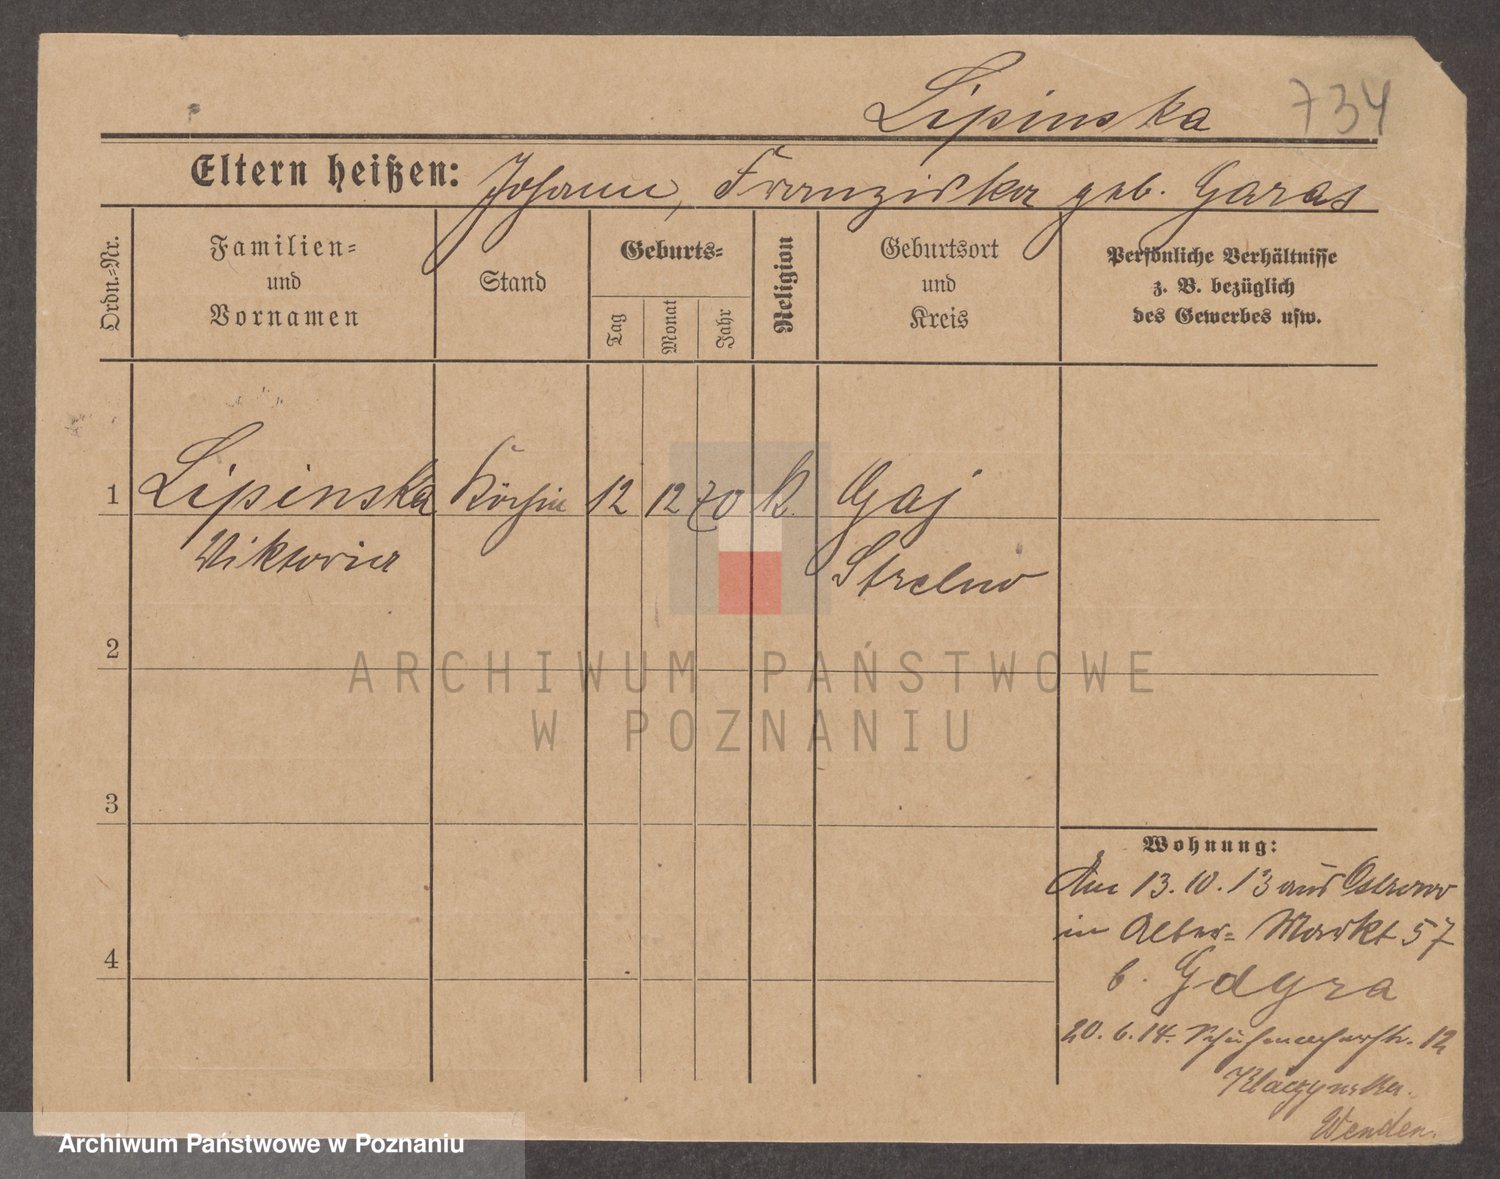 Lipinska 734
Eltern heißen: Johann, Franziska geb. Garas
Ordn.=Nr.
Familien=
und
Vornamen
Stand
Geburts=
Tag
Monat
Jahr
Religion
Geburtsort
und
Kreis
Persönliche Verhältnisse
z. B. bezüglich
des Gewerbes usw.
1 Lipinska Köchin 12 12 70 K. Gaj
Viktoria Strelno
2
ARCHIWUM PAŃSTWOWE
W POZNANIU
3
Wohnung:
Am 13.10.13 aus Ostrowo
in Alter= Markt 57
4
b. Gdyra
20.6.14. Schuhmacherstr. 12
Klaczynska.
Archiwum Państwowe w Poznaniu